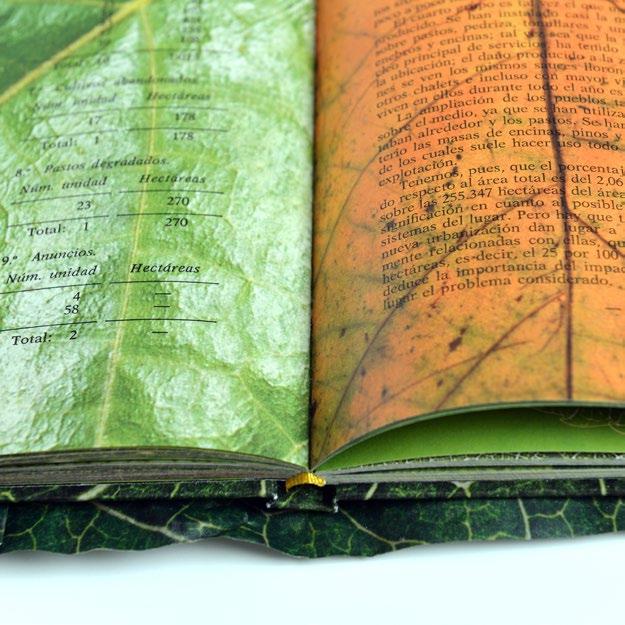 7.º Cultivos abandonados.
Núm. unidad Hectáreas
17 178
Total: 1 178
8.º Pastos degradados.
Núm. unidad Hectáreas
23 270
Total: 1 270
9.º Anuncios.
Núm. unidad Hectáreas
4 —
58 —
Total: 2 —
El cuarto grupo es talvez el que
producido. Se han instalado casi la
sobre pastos, pedriza, tomillares y un
enebros y encinas; tal
cleo principal de servicios; ha tenido
la ubicación; el daño producido a la
nes se ven los mismos sauces
otros chalets e incluso con mayor vi
viven en ellos durante todo el año es
La ampliación de los pueblos ta
sobre el medio, ya que se han utiliza
jaban alrededor y los pastos. Se han
terio las masas de encinas, pinos y
de los cuales suele hacer uso todo
explotación.
Tenemos, pues, que el porcentaj
do respecto al área total es del 2,06
sobre las 255.347 hectáreas del área
significación en cuanto al posible
sistemas del lugar. Pero hay que t
nueva urbanización dan lugar a
mente relacionadas con ellas, qu
hectáreas, es decir, el 25 por 100
deduce la importancia del impac
lugar el problema considerado.